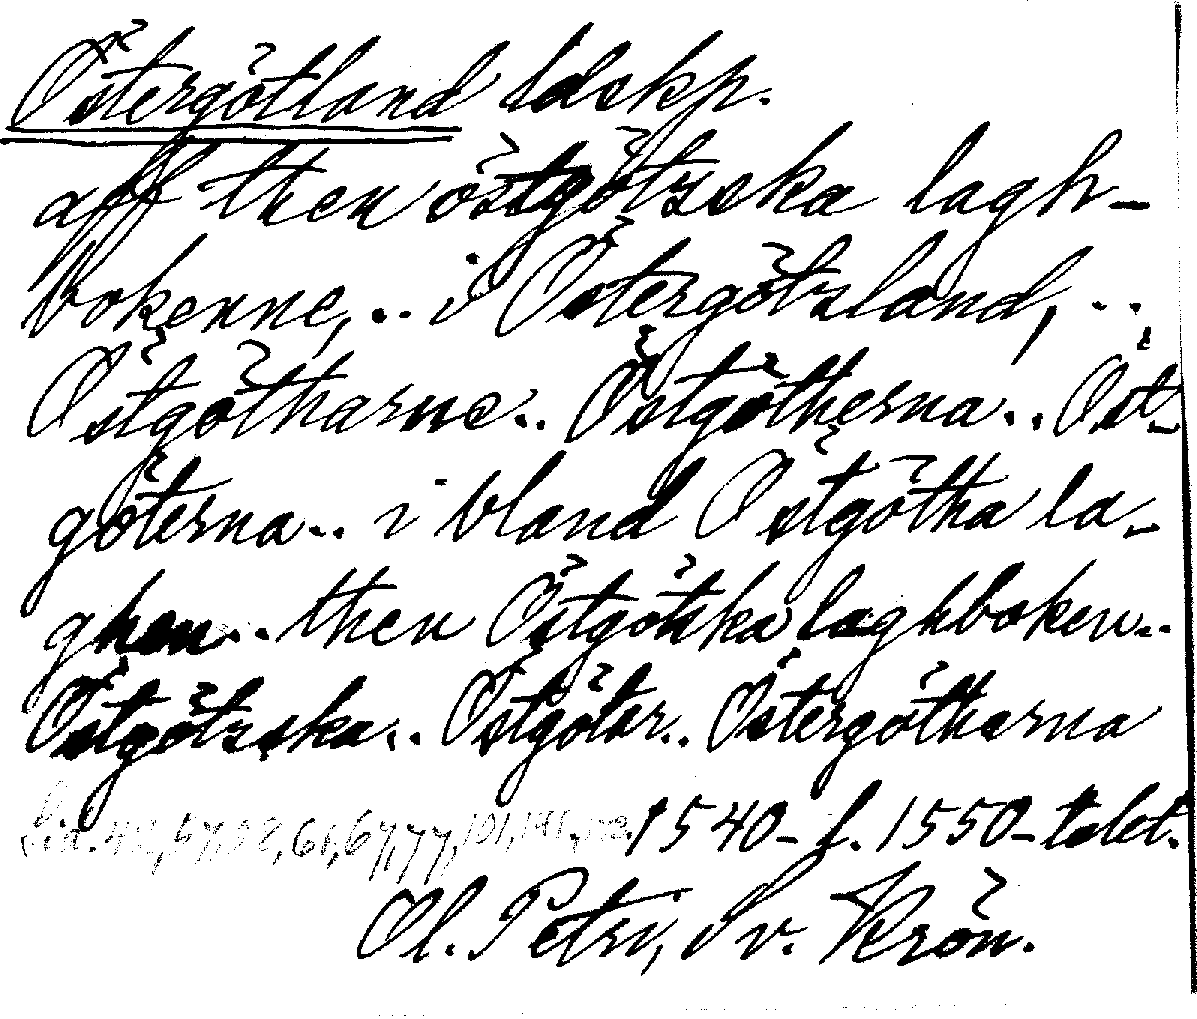 Östergötland ldskp.
aff then östgötzska lagh-
bokenne, .. i Östergötzland, ..
Östgötharne .. Östgötherna .. Öst-
göterna .. i bland Östgötha la-
ghen .. then Östgötska laghboken ..
Östgötzska .. Östgöter .. Östergötharna
Sid. 42, 57, 58, 61, 67, 77, 101, 141, 1540- f. 1550-talet.
Ol. Petri, Sv. Krön.